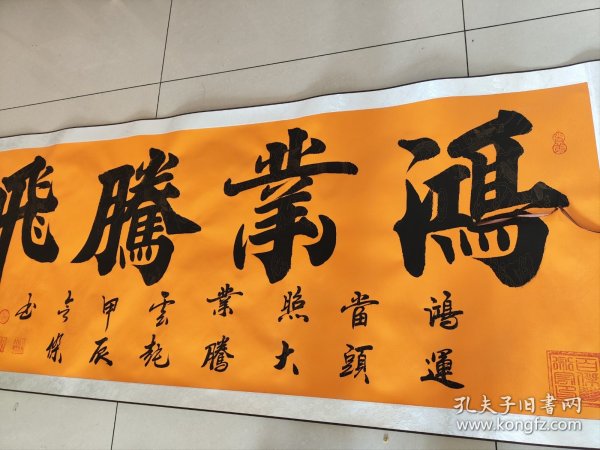 鴻業騰飛
鴻運
當頭
照大
業騰
雲
甲辰
书
孔夫子旧书网
www.kongfz.com